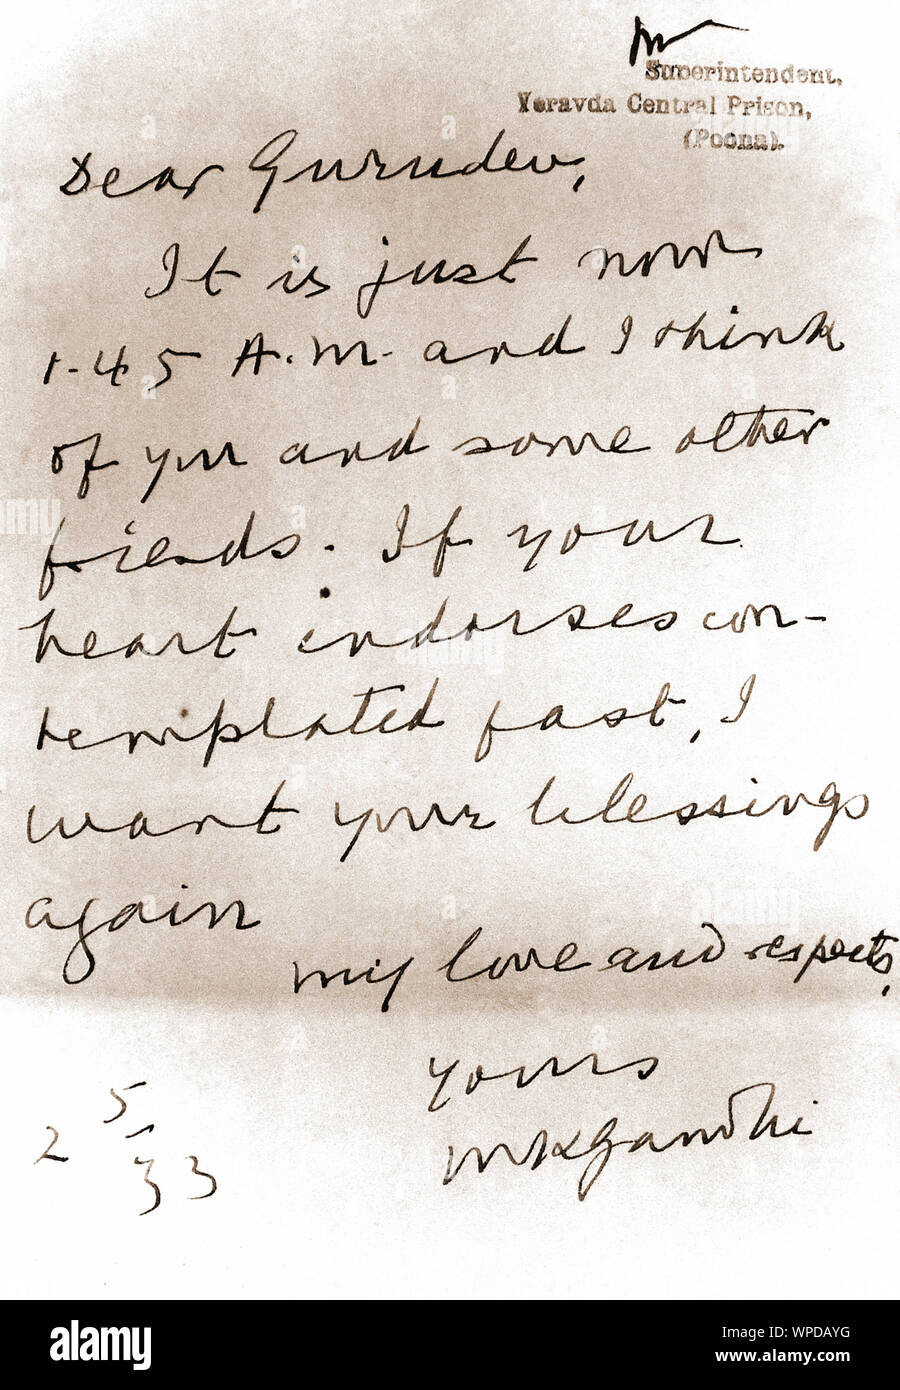 Superintendent,
Yeravda Central Prison,
(Poona).
Dear Gurudev,
It is just now
1.45 A.M. and I think
of you and some other
friends. If your
heart endorses con-
templated fast, I
want your blessings
again
My love and respects,
yours
MKGandhi
2 5/33
alamy
Image ID: WPDAYG
www.alamy.com